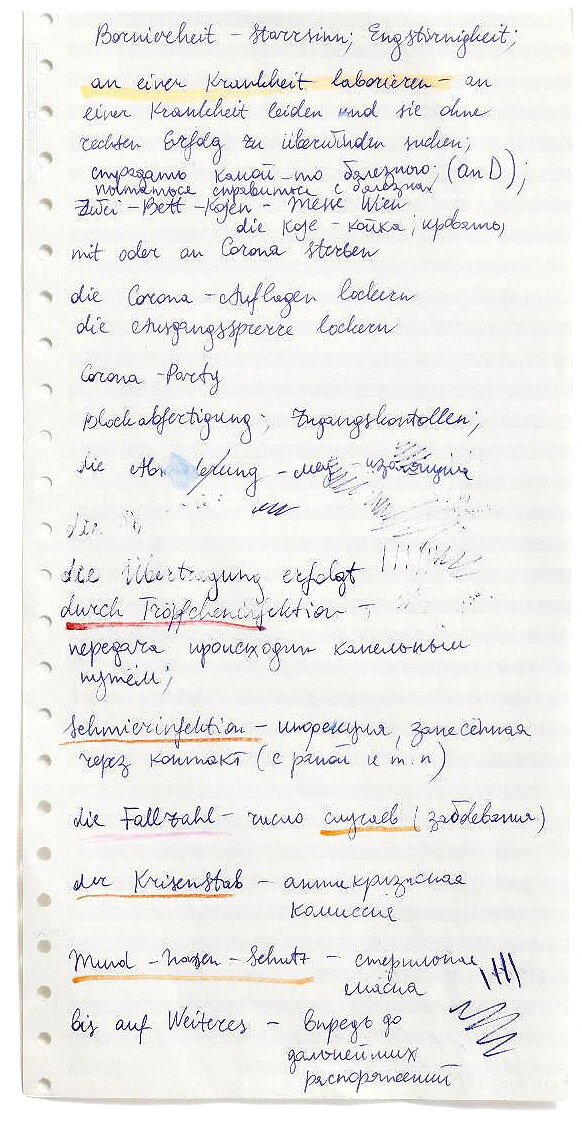 Borniertheit – Starrsinn; Engstirnigkeit;
an einer Krankheit laborieren – an
einer Krankheit leiden und sie ohne
rechten Erfolg zu überwinden suchen;
страдать какой-то болезнью; (an D);
пытаться справиться с болезнью
Zwei-Bett-Kojen – Messe Wien
die Koje – койка; кровать;
mit oder an Corona sterben
die Corona-Auflagen lockern
die Ausgangssperre lockern
Corona-Party
Blockabfertigung; Zugangskontollen;
die
die
die Übertragung erfolgt
durch Tröpfcheninfektion –
передача происходит капельным
путём;
Schmierinfektion – инфекция, занесённая
через контакт (с раной и т.п)
die Fallzahl – число случаев (заболевания)
der Krisenstab – антикризисная
комиссия
Mund-Nasen-Schutz – стерильная
маска
bis auf Weiteres – впредь до
дальнейших
распоряжений